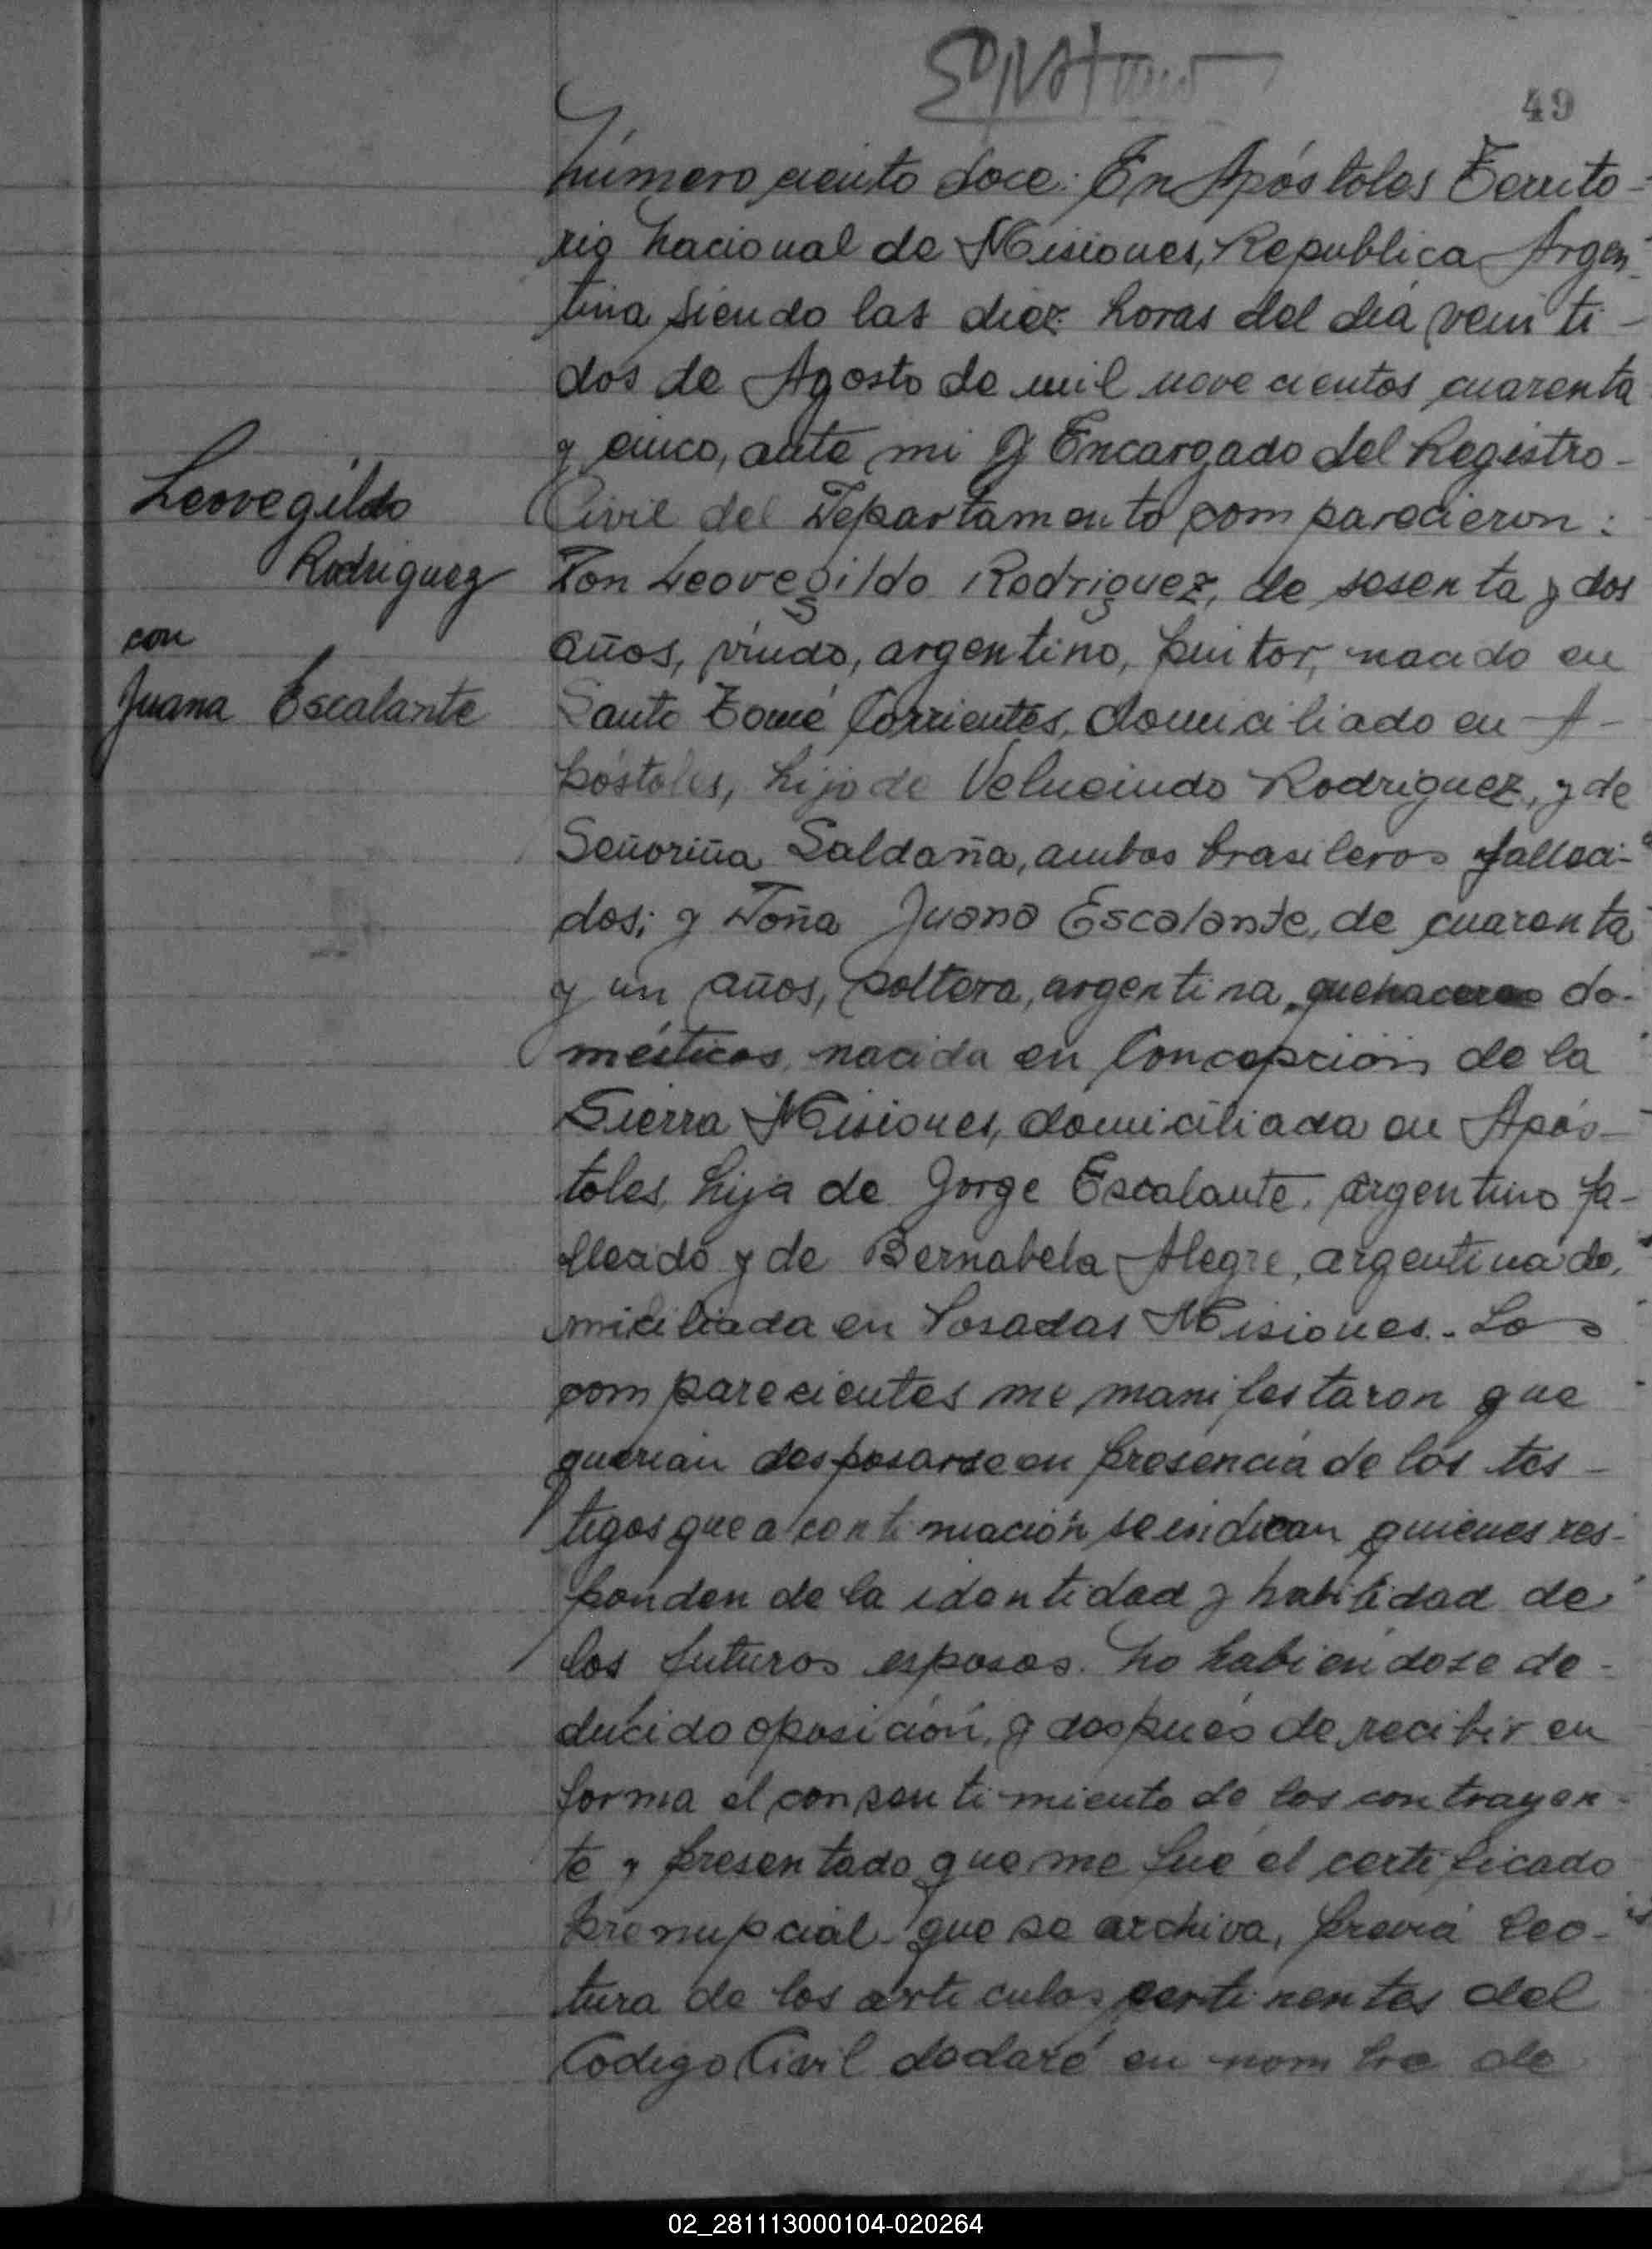 49
Número ciento doce: En Apóstoles Territo-
rio Nacional de Misiones, Republica Argen-
tina siendo las diez horas del día veinti-
dos de Agosto de mil novecientos cuarenta
y cinco, ante mi Encargado del Registro
Civil del Departamento comparecieron:
Leovegildo
Rodriguez
con
Juana Escalante
Don Leovegildo Rodriguez, de sesenta y dos
años, viudo, argentino, pintor, nacido en
Santo Tomé Corrientes, domiciliado en A-
póstoles, hijo de Rodriguez, y de
Señoriña Saldaña, ambos brasileros falleci-
dos; y Doña Juana Escalante, de cuarenta
y un años, soltera, argentina, quehaceres do-
mésticos, nacida en Concepción de la
Sierra Misiones, domiciliada en Após-
toles, hija de Jorge Escalante, argentino fa-
llecido y de Bernabela Alegre, argentina do-
miciliada en Posadas Misiones.- Los
comparecientes me manifestaron que
querian desposarse en presencia de los tes-
tigos que a continuación se indican quienes res-
ponden de la identidad y habilidad de
los futuros esposos. No habiendose de-
ducido oposición, y después de recibir en
forma el consentimiento de los contrayen-
te y presentado que me fué el certificado
prenupcial que se archiva, previa lec-
tura de los articulos pertinentes del
Codigo Civil declaré en nombre de
02_281113000104-020264